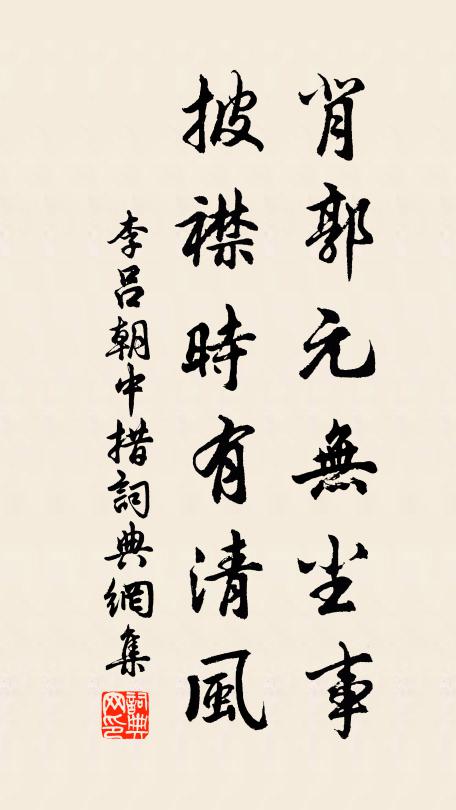 背郭元無尘事
披襟時有清風
李呂朝中措詞典網集
詞典
网印